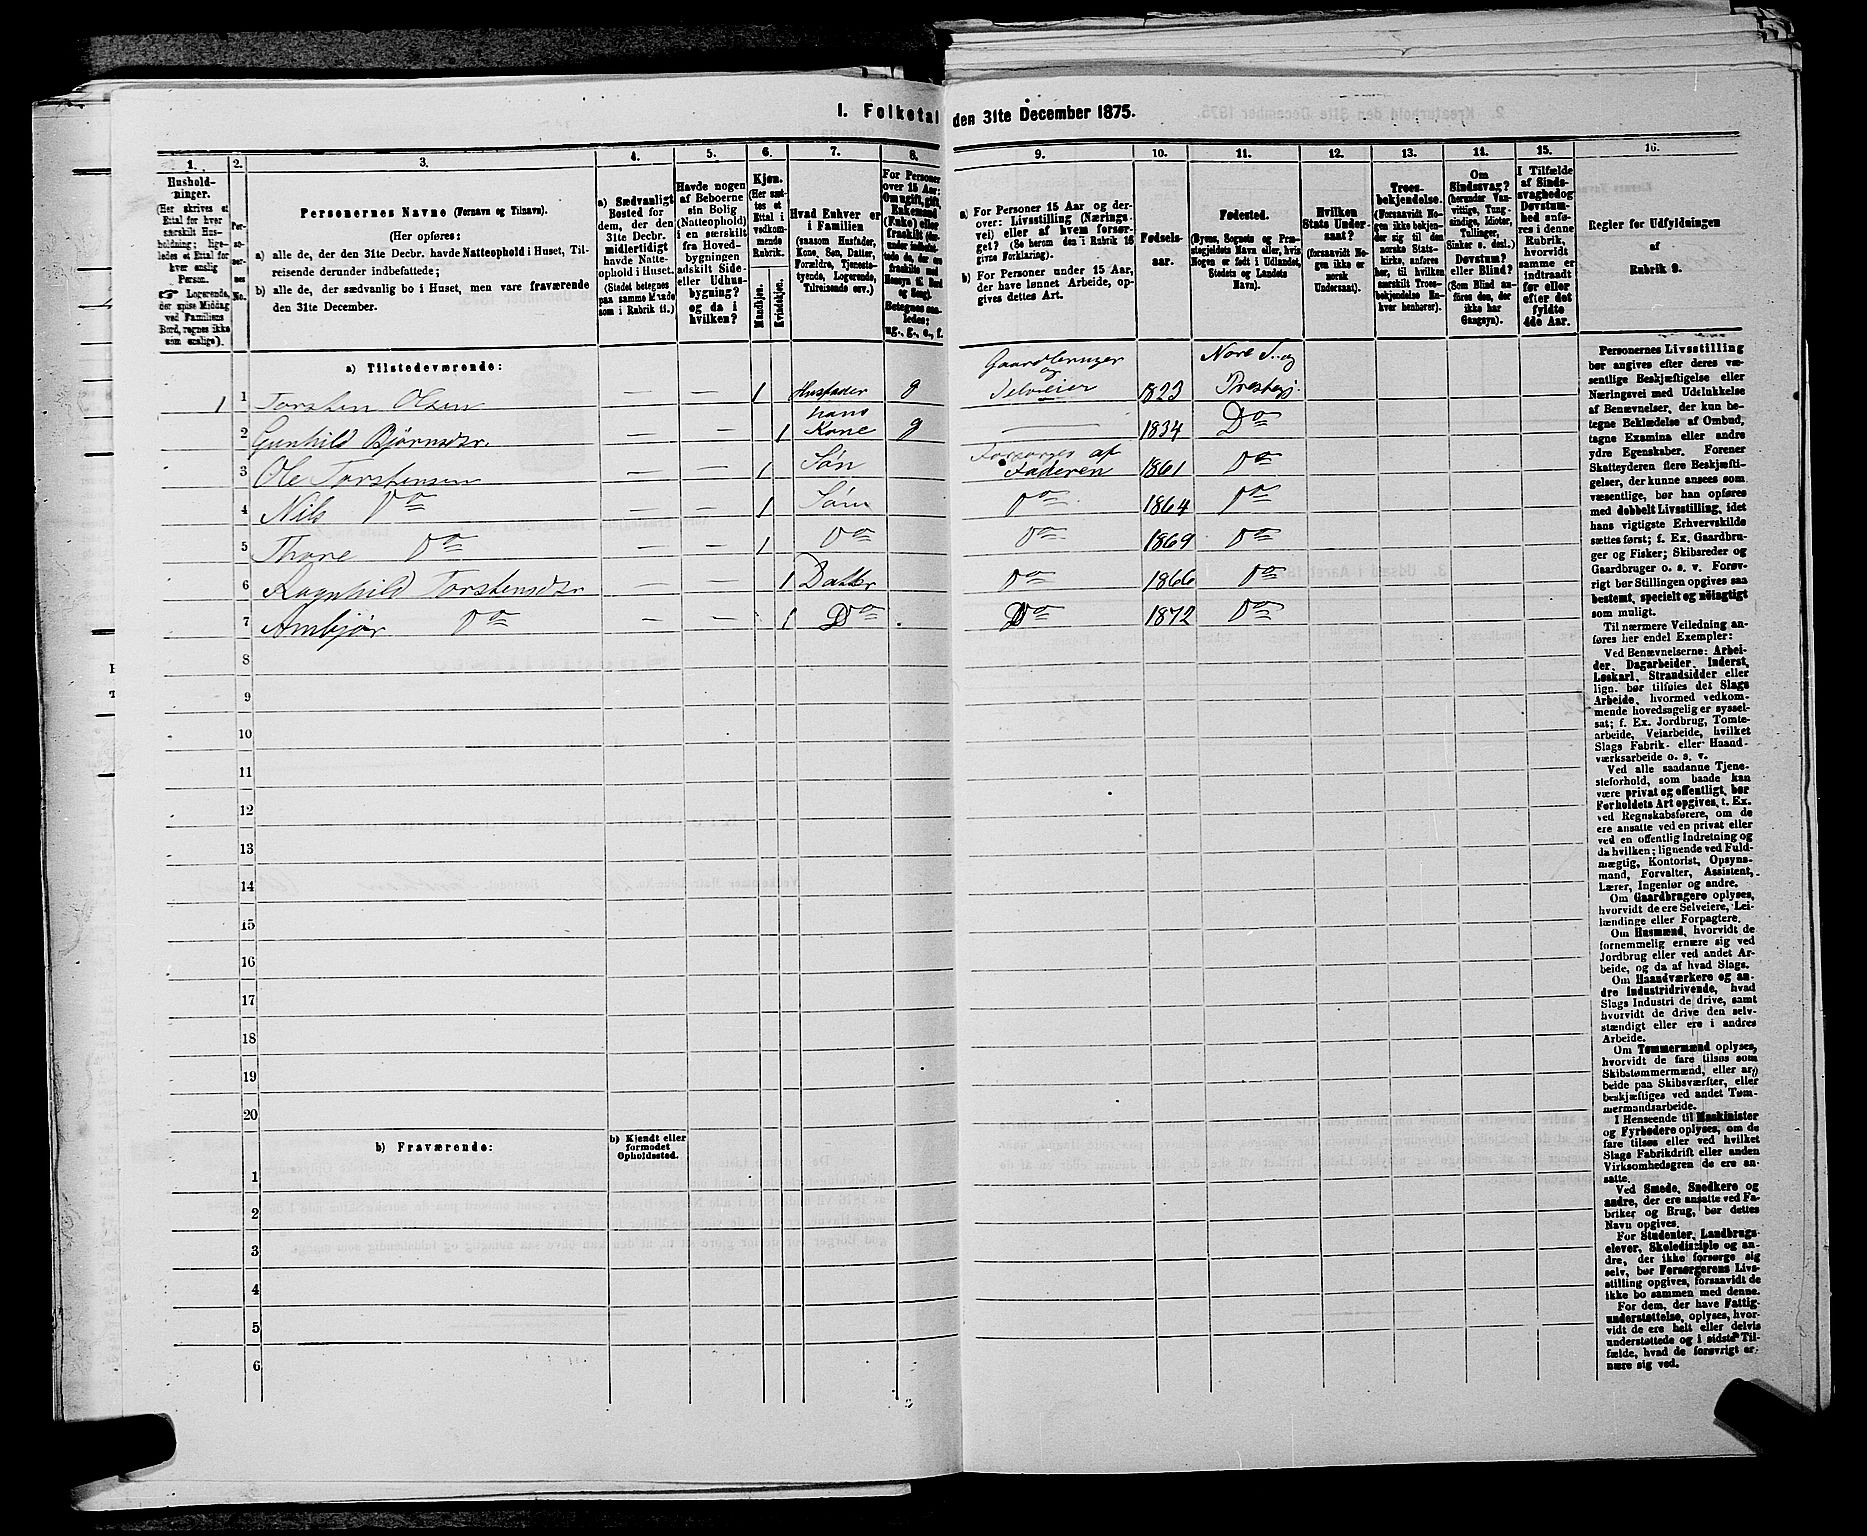 I. Folketal den 31te December 1875.
1. 2. 3. 4. 5. 6. 7. 8. 9. 10. 11. 12. 13. 14. 15. 16.
Hushold-
ninger.
(Her skrives et
Ettal for hver
særskilt Hus-
holdning; lige-
ledes et Ettal for
hver enslig
Person.
☞ Logerende,
der spise Middag
ved Familiens
Bord, regnes ikke
som enslige).
Per-
so-
ner-
nes
No.
Personernes Navne (Fornavn og Tilnavn).
(Her opføres:
a) alle de, der den 31te Decbr. havde Natteophold i Huset, Til-
reisende derunder indbefattede;
b) alle de, der sædvanlig bo i Huset, men vare fraværende
den 31te December.
a) Sædvanligt
Bosted for
dem, der den
31te Decbr.
midlertidigt
havde Natte-
ophold i Huset.
(Stedet betegnes
paa samme Maade
som i Rubrik 11.)
Havde nogen
af Beboerne
sin Bolig
(Natteophold)
i en særskilt
fra Hoved-
bygningen
adskilt Side-
eller Udhus-
bygning?
og da i
hvilken?
Kjøn.
(Her sæt-
tes et
Ettal i
vedkom-
mende
Rubrik.
Mandkjøn.
Kvindekjøn.
Hvad Enhver er
i Familien
(saasom Husfader,
Kone, Søn, Datter,
Forældre, Tjeneste-
tyende, Logerende,
Tilreisende osv.)
For Personer
over 15 Aar:
Om ugift, gift,
Enkemand
(Enke) eller
fraskilt (her-
under indbefat-
tede de, der ere
fraskilte med
Hensyn til Bord
og Seng).
Betegnes saa-
ledes:
ug., g., e., f.
a) For Personer 15 Aar og der-
over: Livsstilling (Nærings-
vei) eller af hvem forsør-
get? (Se herom den i Rubrik 16
givne Forklaring).
b) For Personer under 15 Aar,
der have lønnet Arbeide, op-
gives dettes Art.
Fødsels-
aar.
Fødested.
(Byens, Sognets og Præ-
stegjeldets Navn eller, hvis
Nogen er født i Udlandet,
Stedets og Landets
Navn).
Hvilken
Stats Under-
saat?
(forsaavidt No-
gen ikke er
norsk
Undersaat).
Troes-
bekjendelse.
(Forsaavidt No-
gen ikke bekjen-
der sig til den
norske Stats-
kirke, anføres
her, til hvilken
særskilt Troes-
bekjendelse En-
hver henhører).
Om
Sindssvag?
(herunder Van-
vittige, Tung-
sindige, Idioter,
Tullinger,
Sinker o. desl.)
Døvstum?
eller Blind?
(Som Blind an-
føres den, der
ikke har
Gangsyn).
I Tilfælde
af Sinds-
svaghed og
Døvstum-
hed anfø-
res i denne
Rubrik,
hvorvidt
samme er
indtraadt
før eller
efter det
fyldte
4de Aar.
Regler for Udfyldningen
af
Rubrik 9.
a) Tilstedeværende:
1 1 Torsten Olsen — — 1 Husfader g Gaardbruger og Selveier 1823 Nore S. og Prestegj.
2 Gunhild Bjørnsdtr. — — 1 hans Kone g — 1834 Do
3 Ole Torstensen — — 1 Søn Forsørges af Faderen 1861 Do
4 Nils Do — — 1 Søn Do 1864 Do
5 Thore Do — — 1 Do Do 1869 Do
6 Ragnhild Torstensdtr — — 1 Datter Do 1866 Do
7 Ambjør Do — — 1 Do Do 1872 Do
8
9
10
11
12
13
14
15
16
17
18
19
20
b) Fraværende:
b) Kjendt eller
formodet
Opholdssted.
1
2
3
4
5
6
Personernes Livsstilling
bør angives efter deres væ-
sentlige Beskjæftigelse eller
Næringsvei med Udelukkelse
af Benævnelser, der kun be-
tegne Beklædelse af Ombud,
tagne Examina eller andre
ydre Egenskaber. Forener
Skatteyderen flere Beskjæfti-
gelser, der kunne ansees som
væsentlige, bør han opføres
med dobbelt Livsstilling, idet
hans vigtigste Erhvervskilde
sættes først; f. Ex. Gaardbru-
ger og Fisker; Skibsreder og
Gaardbruger o. s. v. Forøv-
rigt bør Stillingen opgives saa
bestemt, specielt og nøiagtigt
som muligt.
Til nærmere Veiledning an-
føres her endel Exempler:
Ved Benævnelserne: Arbei-
der, Dagarbeider, Inderst,
Løskarl, Strandsidder eller
lign. bør tilføies det Slags
Arbeide, hvormed vedkom-
mende hovedsagelig er syssel-
sat; f. Ex. Jordbrug, Tomte-
arbeide, Veiarbeide, hvilket
Slags Fabrik- eller Haand-
værksarbeide o. s. v.
Ved alle saadanne Tjene-
steforhold, som baade kan
være privat og offentligt, bør
Forholdets Art opgives, t. Ex.
ved Regnskabsførere, om de
ere ansatte ved en privat eller
ved en offentlig Indretning og
da hvilken; lignende ved Fuld-
mægtig, Kontorist, Opsyns-
mand, Forvalter, Assistent,
Lærer, Ingeniør og andre.
Om Gaardbrugere oplyses,
hvorvidt de ere Selveiere, Lei-
lændinge eller Forpagtere.
Om Husmænd, hvorvidt de
fornemmelig ernære sig ved
Jordbrug eller ved andet Ar-
beide, og da af hvad Slags.
Om Haandværkere og an-
dre Industridrivende, hvad
Slags Industri de drive, samt
hvorvidt de drive den selv-
stændigt eller ere i andres
Arbeide.
Om Tømmermænd oplyses,
hvorvidt de fare tilsøs som
Skibstømmermænd, eller ar-
beide paa Skibsværfter, eller
beskjæftiges ved andet Tøm-
mermandsarbeide.
I Henseende til Maskinister
og Fyrbødere oplyses, om de
fare tilsøs eller ved hvilket
Slags Fabrikdrift eller anden
Virksomhedsgren de ere an-
satte.
Ved Smede, Snedkere og
andre, der ere ansatte ved Fa-
briker og Brug, bør dettes
Navn opgives.
For Studenter, Landbrugs-
elever, Skoledisciple og an-
dre, der ikke forsørge sig
selv, bør Forsørgerens Livs-
stilling opgives, forsaavidt de
ikke bo sammen med denne.
For dem, der have Fattig-
understøttelse, oplyses, hvor-
vidt de ere helt eller delvis
understøttede og i sidste Til-
fælde, hvad de forøvrigt er-
nære sig ved.